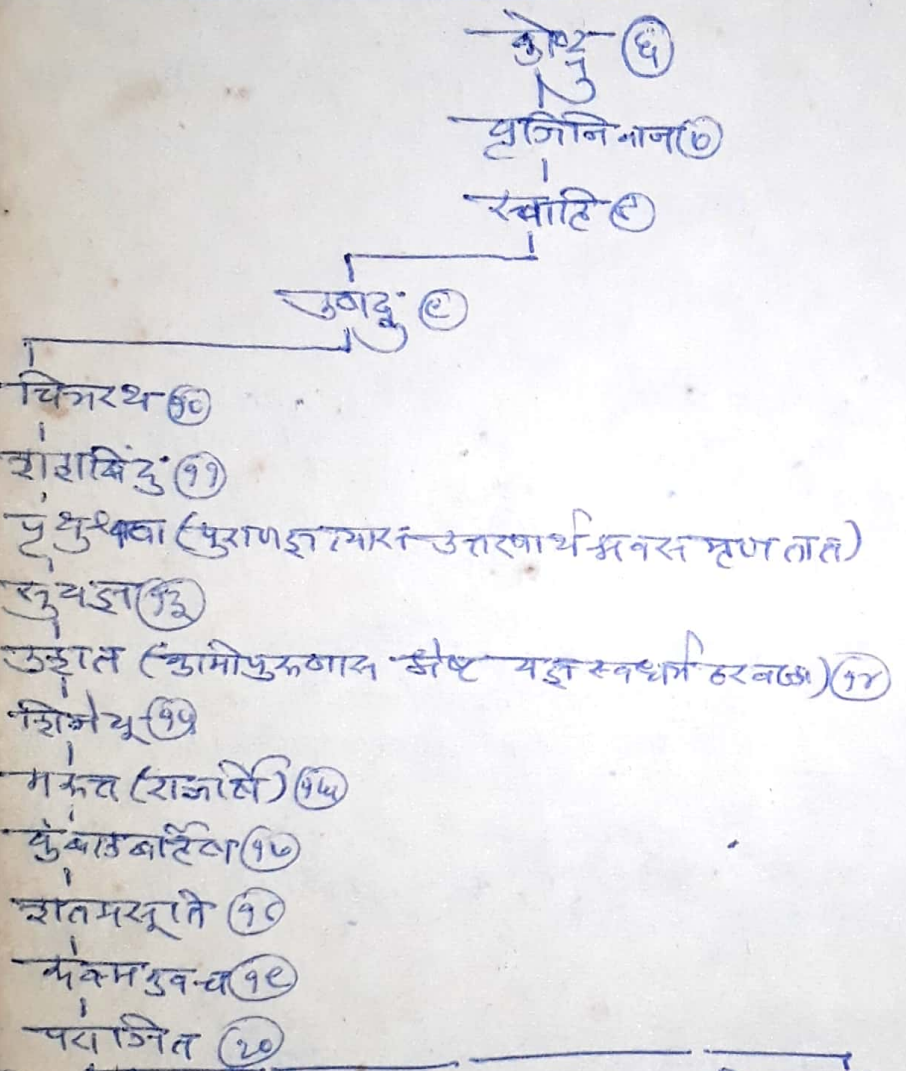 क्रोष्टु ६
वृजिनिवाज ७
स्वाहि ८
उषद्रु ९
चित्ररथ १०
शशबिंदु ११
पृथुश्रवा (पुराणज्ञ त्यास उत्तरपार्थ म्हणतात)
सुयज्ञ १३
उशत श्रेष्ठ यज्ञ स्वधर्म १४
शिनेयू १५
मरुत्त (राजर्षि) १६
कंबलबर्हिष १७
शतप्रसूति १८
रुक्मकवच १९
पराजित २०